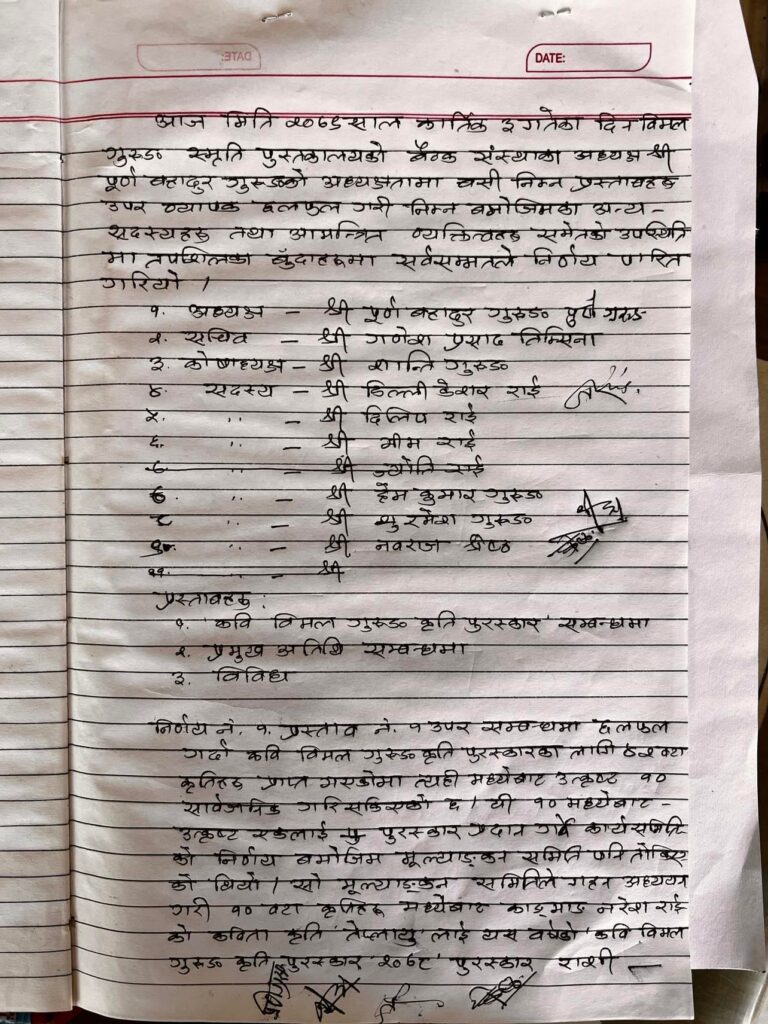 DATE:
आज मिति २०७९ साल कार्तिक ३ गतेका दिन विमल
गुरुङ स्मृति पुस्तकालयको बैठक संस्थाका अध्यक्ष श्री
पूर्ण बहादुर गुरुङको अध्यक्षतामा बसी निम्न प्रस्तावहरु
उपर व्यापक छलफल गरी निम्न बमोजिमका अन्य -
सदस्यहरु तथा आमन्त्रित व्यक्तित्वहरु समेतको उपस्थिति
मा तपशिलका बुँदाहरुमा सर्वसम्मतले निर्णय पारित
गरियो ।
१. अध्यक्ष - श्री पूर्ण बहादुर गुरुङ
२. सचिव - श्री गणेश प्रसाद तिम्सिना
३. कोषाध्यक्ष - श्री शान्ति गुरुङ
४. सदस्य - श्री डिल्ली केशर राई
५. " - श्री दिलिप राई
६. " - श्री भीम राई
" - श्री ज्योति राई
" - श्री हेम कुमार गुरुङ
८ " - श्री गुरुङ
" - श्री नवराज श्रेष्ठ
११. - श्री
प्रस्तावहरु :
१. 'कवि विमल गुरुङ कृति पुरस्कार' सम्बन्धमा
२. प्रमुख अतिथि सम्बन्धमा
३. विविध
निर्णय नं. १. प्रस्ताव नं. १ उपर सम्बन्धमा छलफल
गर्दा कवि विमल गुरुङ कृति पुरस्कारका लागि वटा
कृतिहरु प्राप्त भएकोमा त्यही मध्येबाट उत्कृष्ट १०
सार्वजनिक गरिसकिएको छ । यी १० मध्येबाट -
उत्कृष्ट एकलाई पुरस्कार प्रदान गर्ने कार्यसमिति
को निर्णय बमोजिम मूल्याङ्कन समिति पनि तोकिए
को थियो । सो मूल्याङ्कन समितिले गहन अध्ययन
गरी १० वटा कृतिहरु मध्येबाट काङ्माङ नरेश राई
को कविता कृति 'तेप्लायु' लाई यस वर्षको 'कवि विमल
गुरुङ कृति पुरस्कार २०७९' पुरस्कार राशी -